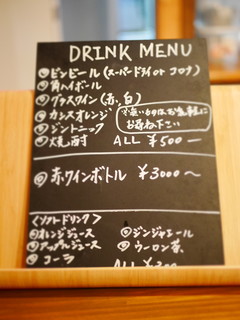 DRINK MENU
◎ビンビール(スーパードライ or コロナ)
◎角ハイボール
◎グラスワイン(赤、白)
◎カシスオレンジ
◎ジントニック
◎焼酎
お尋ね下さい
ALL ¥500ー
◎赤ワインボトル ¥3000〜
<ソフトドリンク>
◎オレンジジュース ◎ジンジャエール
◎アップルジュース ◎ウーロン茶
◎コーラ